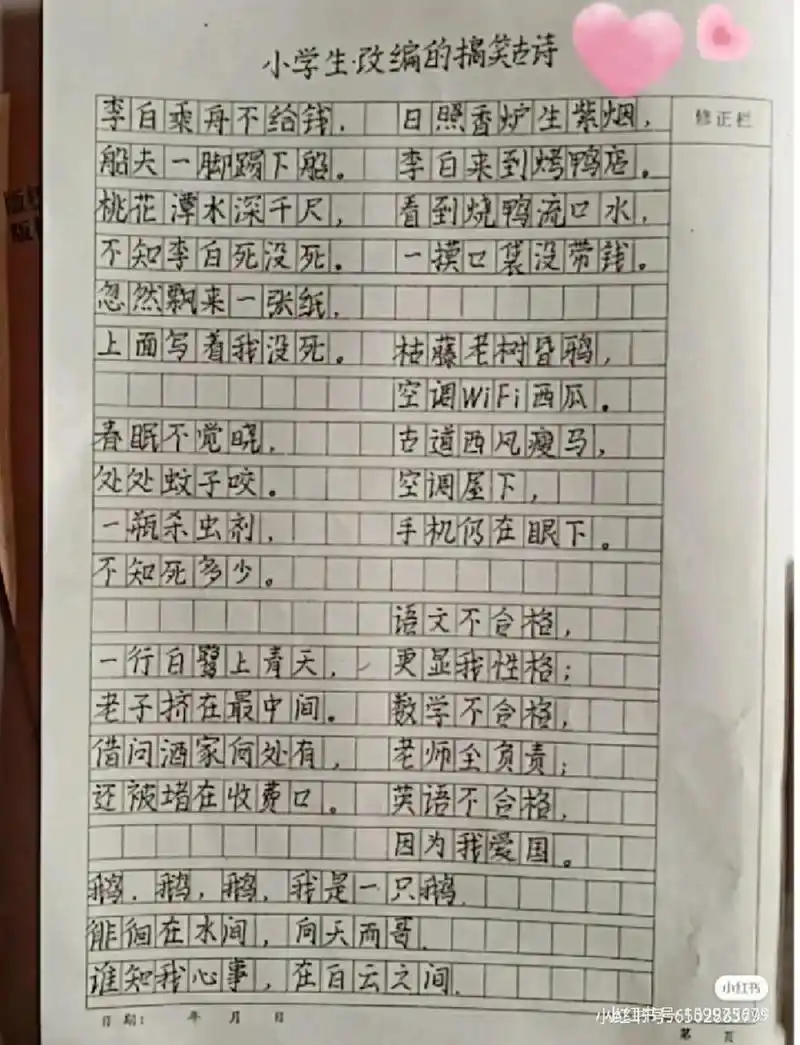 小学生·改编的搞笑古诗
修正栏
李白乘舟不给钱，
船夫一脚踢下船。
桃花潭水深千尺，
不知李白死没死。
忽然飘来一张纸，
上面写着我没死。
春眠不觉晓，
处处蚊子咬。
一瓶杀虫剂，
不知死多少。
一行白鹭上青天，
老子挤在最中间。
借问酒家何处有，
还被堵在收费口。
日照香炉生紫烟，
李白来到烤鸭店。
看到烧鸭流口水，
一摸口袋没带钱。
枯藤老树昏鸦，
空调WiFi西瓜。
古道西风瘦马，
空调屋下，
手机仍在眼下。
语文不合格，
更显我性格；
数学不合格，
老师全负责；
英语不合格，
因为我爱国。
鹅，鹅，鹅，我是一只鹅，
徘徊在水间，向天而哥，
谁知我心事，在白云之间，
日期： 年 月 日
第 页
小红书
小红书号